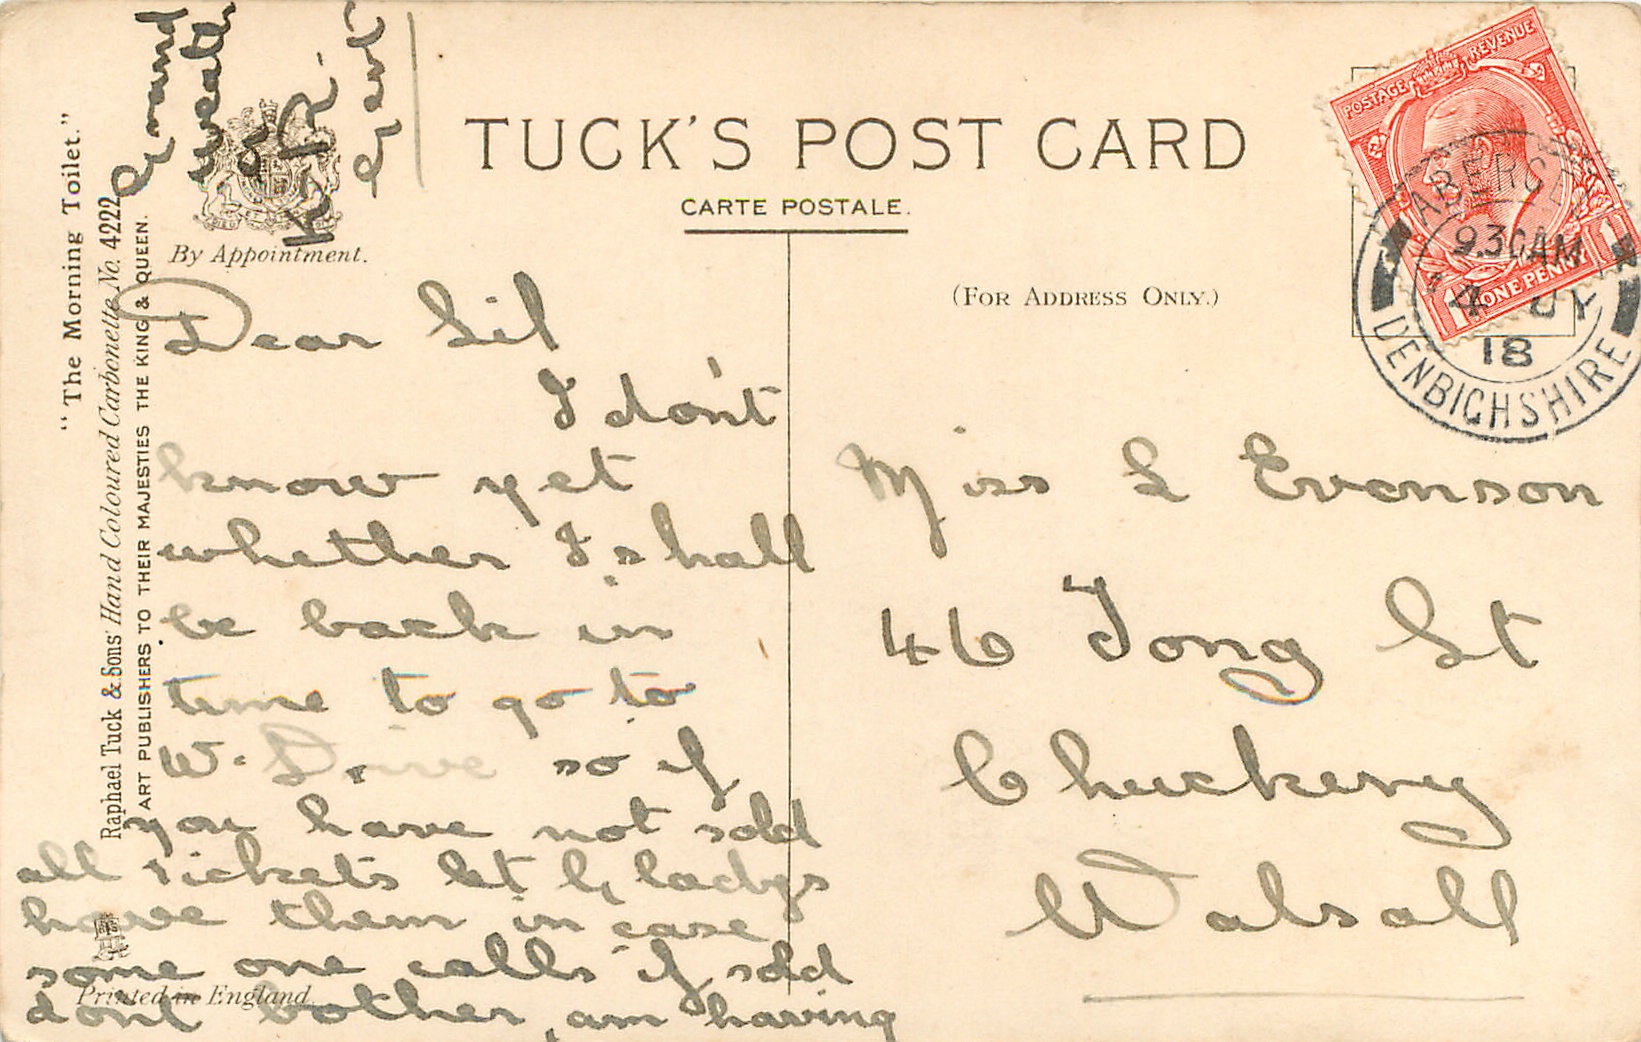 TUCK'S POST CARD
CARTE POSTALE.
(FOR ADDRESS ONLY.)
By Appointment.
"The Morning Toilet."
Raphael Tuck & Sons' Hand Coloured Carbonette No. 4222
ART PUBLISHERS TO THEIR MAJESTIES THE KING & QUEEN.
POSTAGE REVENUE
1 ONE PENNY 1
9.30AM
4 JY
18
DENBIGHSHIRE
Dear Lil
I don't
know yet
whether I shall
be back in
time to go to
W. Drive so if
you have not sold
all tickets let Gladys
have them in case
some one calls if sold
dont bother, am having
Grand
weath
Miss L Evenson
46 Tong St
Chuckery
Walsall
Printed in England